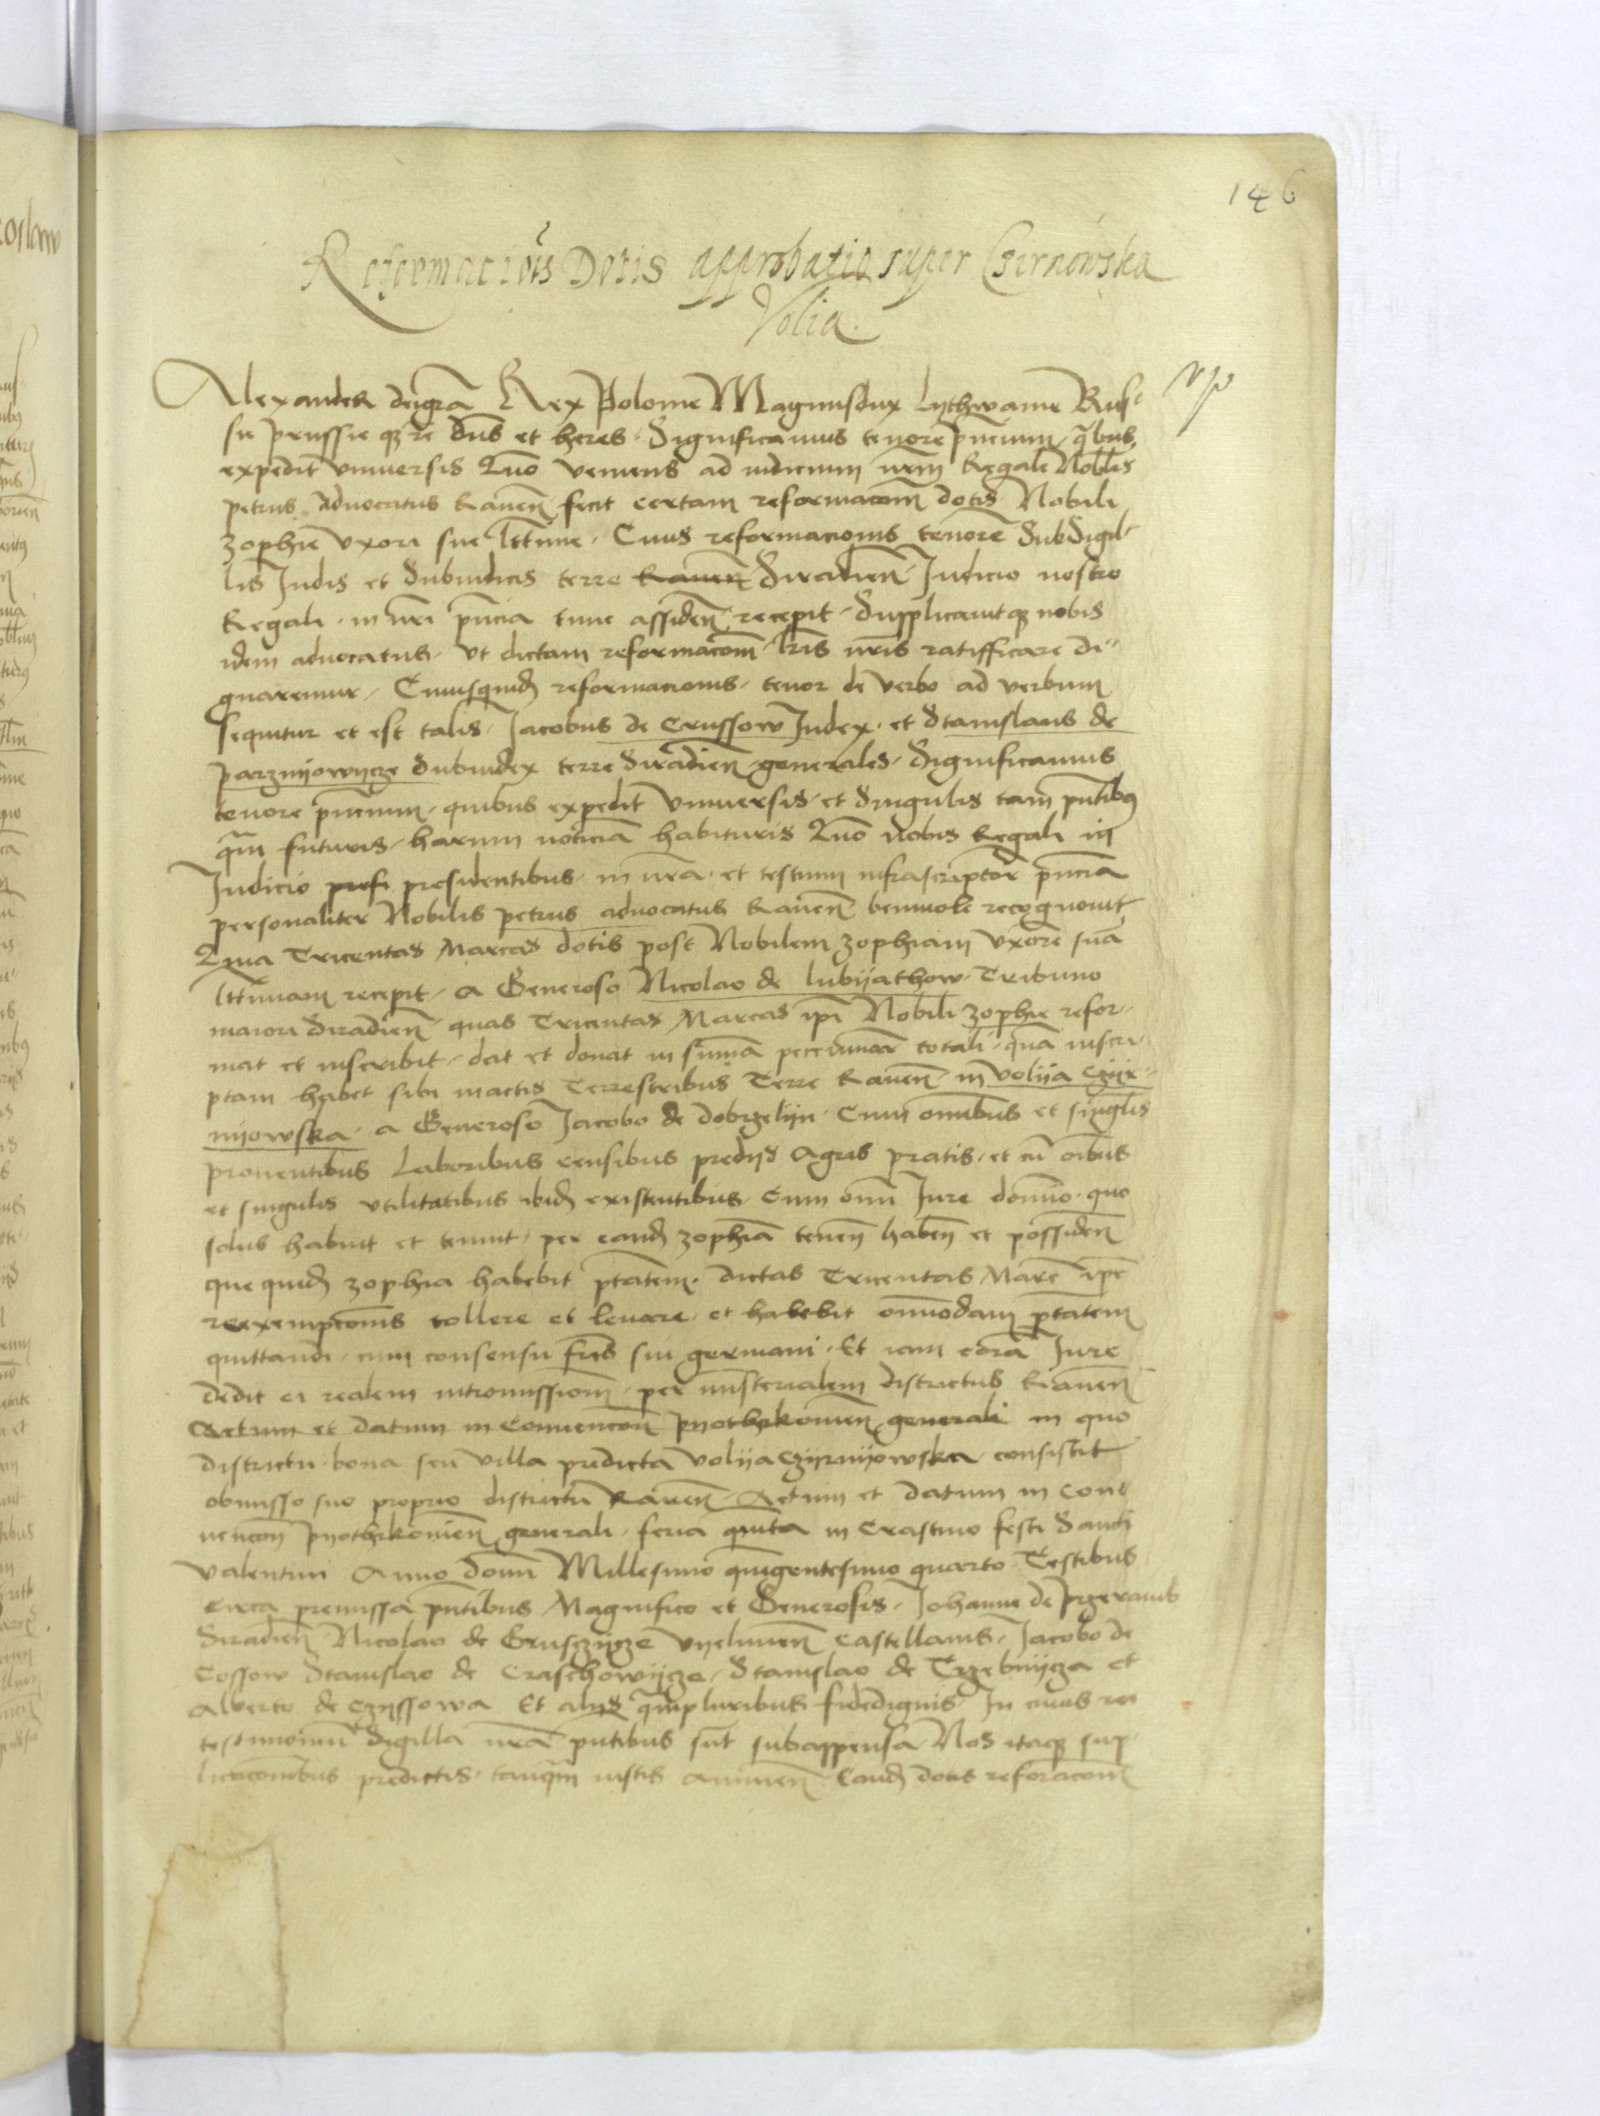 146
Reformacionis Dotis approbatio super Czernowska
Volia.
Alexander dei gra Rex Polonie Magnusdux Lythwanie Rus
sie prussie qz re dns et heres. Significamus tenore pncium qbus
expedit universis Quo veniens ad iudicium nrm Regale Nobilis
petrus Advocatus Raven fecit certam reformacom dotis Nobili
Zophie uxori sue lttime. Cuius reformacionis tenore Sub Sigil
lis Judis et Subiudicis terre Raven Siradien Judicio nostro
Regali in nri pncia tunc assiden recepit. Supplicavitqz nobis
idem advocatus. Ut dictam reformacom lris nris ratifficare di
gnaremur. Cuiusquid reformacionis tenor de verbo ad verbum
sequitur et est talis. Jacobus de Crussow Judex et Stanislaus de
parznijowycze Subiudex terre Siradien generales. Significamus
tenore pncium. quibus expedit Universis et Singulis tam pntibus
qm futuris. harum noticia habituris Quo nobis Regali in
Judicio presi presidentibus in nra et testium infrascriptor pncia
personaliter Nobilis petrus advocatus Raven benivole recognovit
Quia Tricentas Marcas dotis post Nobilem Zophiam Uxore sua
lttimam recepit. A Generoso Nicolao de lubijathow Tribuno
maiori Siradien. quas Tricentas Marcas ipi Nobili Zophie refor
mat et inscribit. dat et donat in suma peccuniar totali. qua inscri
ptam habet sibi in actis Terrestribus Terre Raven in Volija Czijr
nijowska. a Generoso Jacobo de dobrzelijn. Cum omibus et singlis
proventibus Laboribus censibus predijs Agris pratis. et cu oibus
et singulis utilitatibus ibid existentibus. Cum omi Jure domio. quo
solus habuit et tenuit. per eand Zophia tenen haben et possiden
que quid Zophia habebit ptatem. dictas Tricentas Marc ipe
reexempcois tollere et levare. et habebit omimodam ptatem
quittandi. cum consensu fris sui germani. Et iam cora Jure
dedit ei realem intromissiom. per ministerialem districtus Raven
Actum et datum in Convencon pijothrkovien generali in quo
districtu bona seu villa predicta Volija Czijrnijowska consistit
obmisso suo proprio districtu Raven. Actum et datum in Con
vencon pijothrkovien generali. feria quinta in Crastino festi Sancti
Valentini Anno domi Millesimo quingentesimo quarto Testibus
circa premissa pntibus Magnifico et Generosis. Johanne de przeramb
Siradien Nicolao de Gruszczijcze Vijelunen Castellanis. Jacobo de
Cossow Stanislao de Craschowijcze. Stanislao de Trzebnijcza et
Alberto de Czijssowa Et alijs qmpluribus fidedignis In cuius rei
testimonium Sigilla nra pntibus sut subappensa Nos itaqz sup
licacionibus predictis. tanqm iustis Annuen Eand dotis reforacom